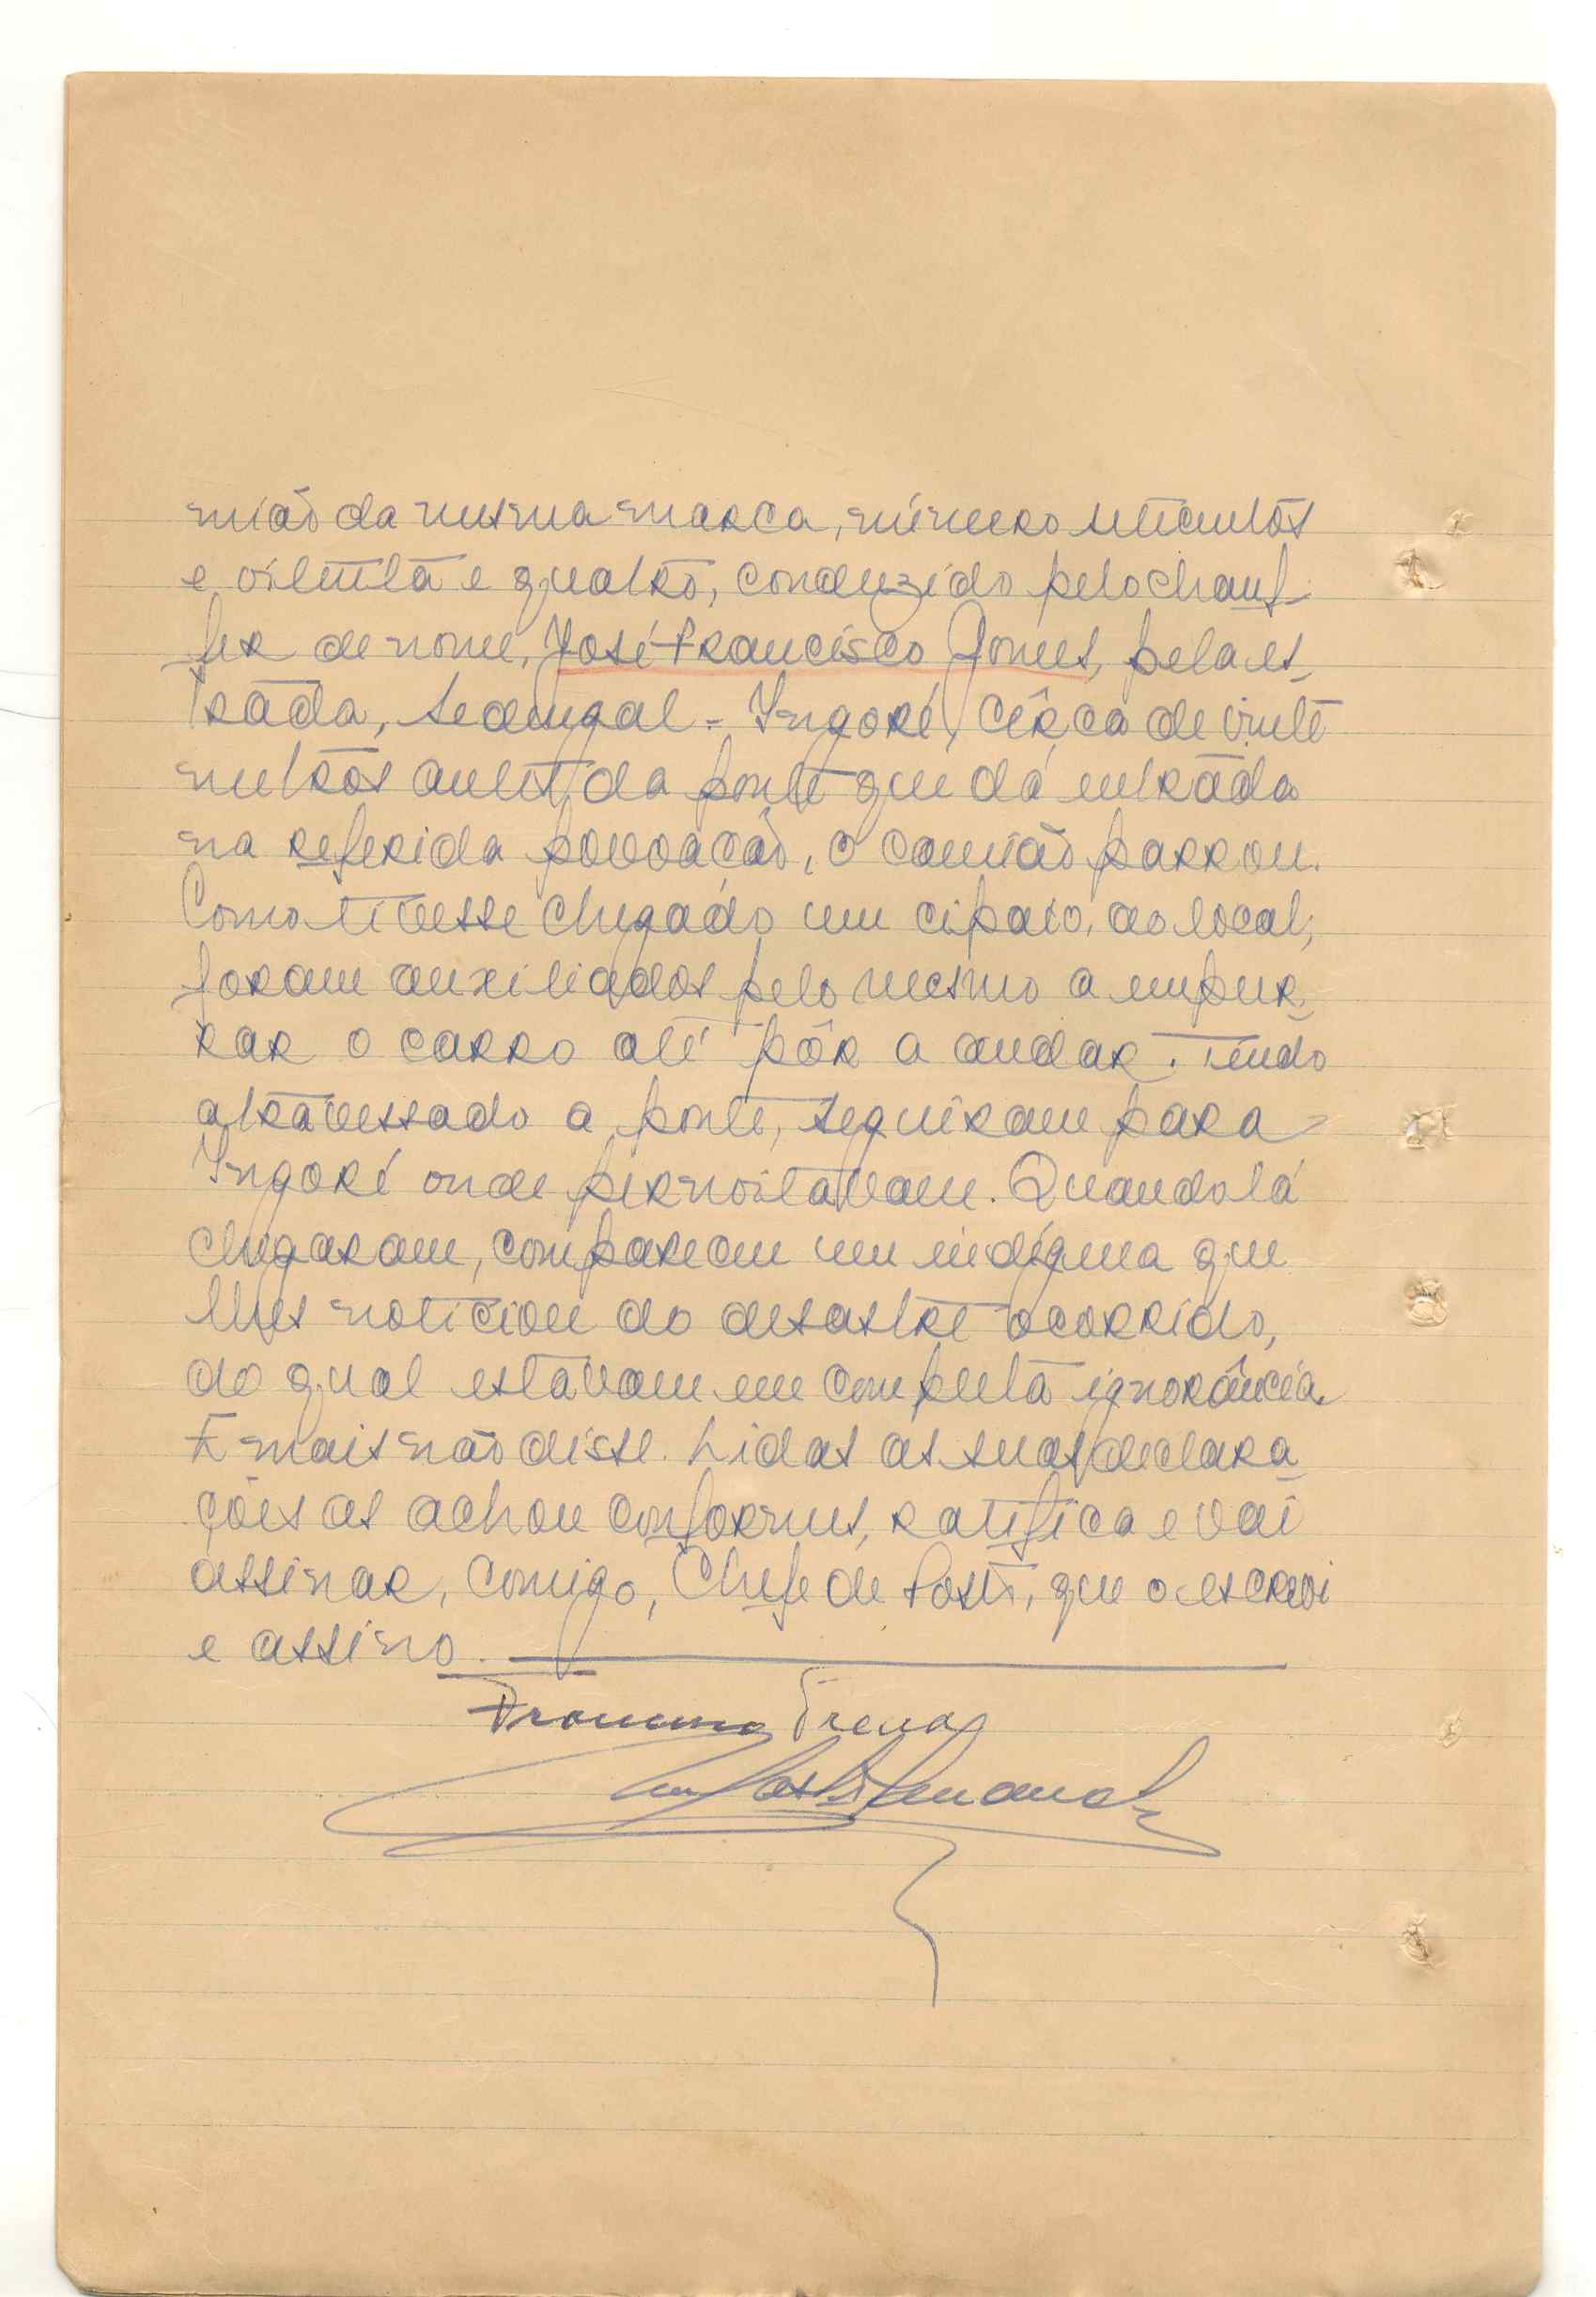 mião da mesma marca, número setecentos
e oitenta e quatro, conduzido pelo chauf-
fer de nome, José Francisco Gomes, pela es-
trada, Sedengal - Ingoré, cêrca de vinte
metros antes da ponte que dá entrada
na referida povoação, o camião parrou.
Como tivesse chegado um cipaio, ao local,
foram auxiliados pelo mesmo a empur-
rar o carro até pôr a andar. Tendo
atravessado a ponte, seguiram para
Ingoré onde pernoitavam. Quando lá
chegaram, compareceu um indígena que
lhes noticiou do desastre ocorrido,
do qual estavam em completa ignorância.
E mais não disse. Lidas as suas declara-
ções as achou conformes, ratifica e vai
assinar, comigo, Chefe de Posto, que o escrevi
e assino.